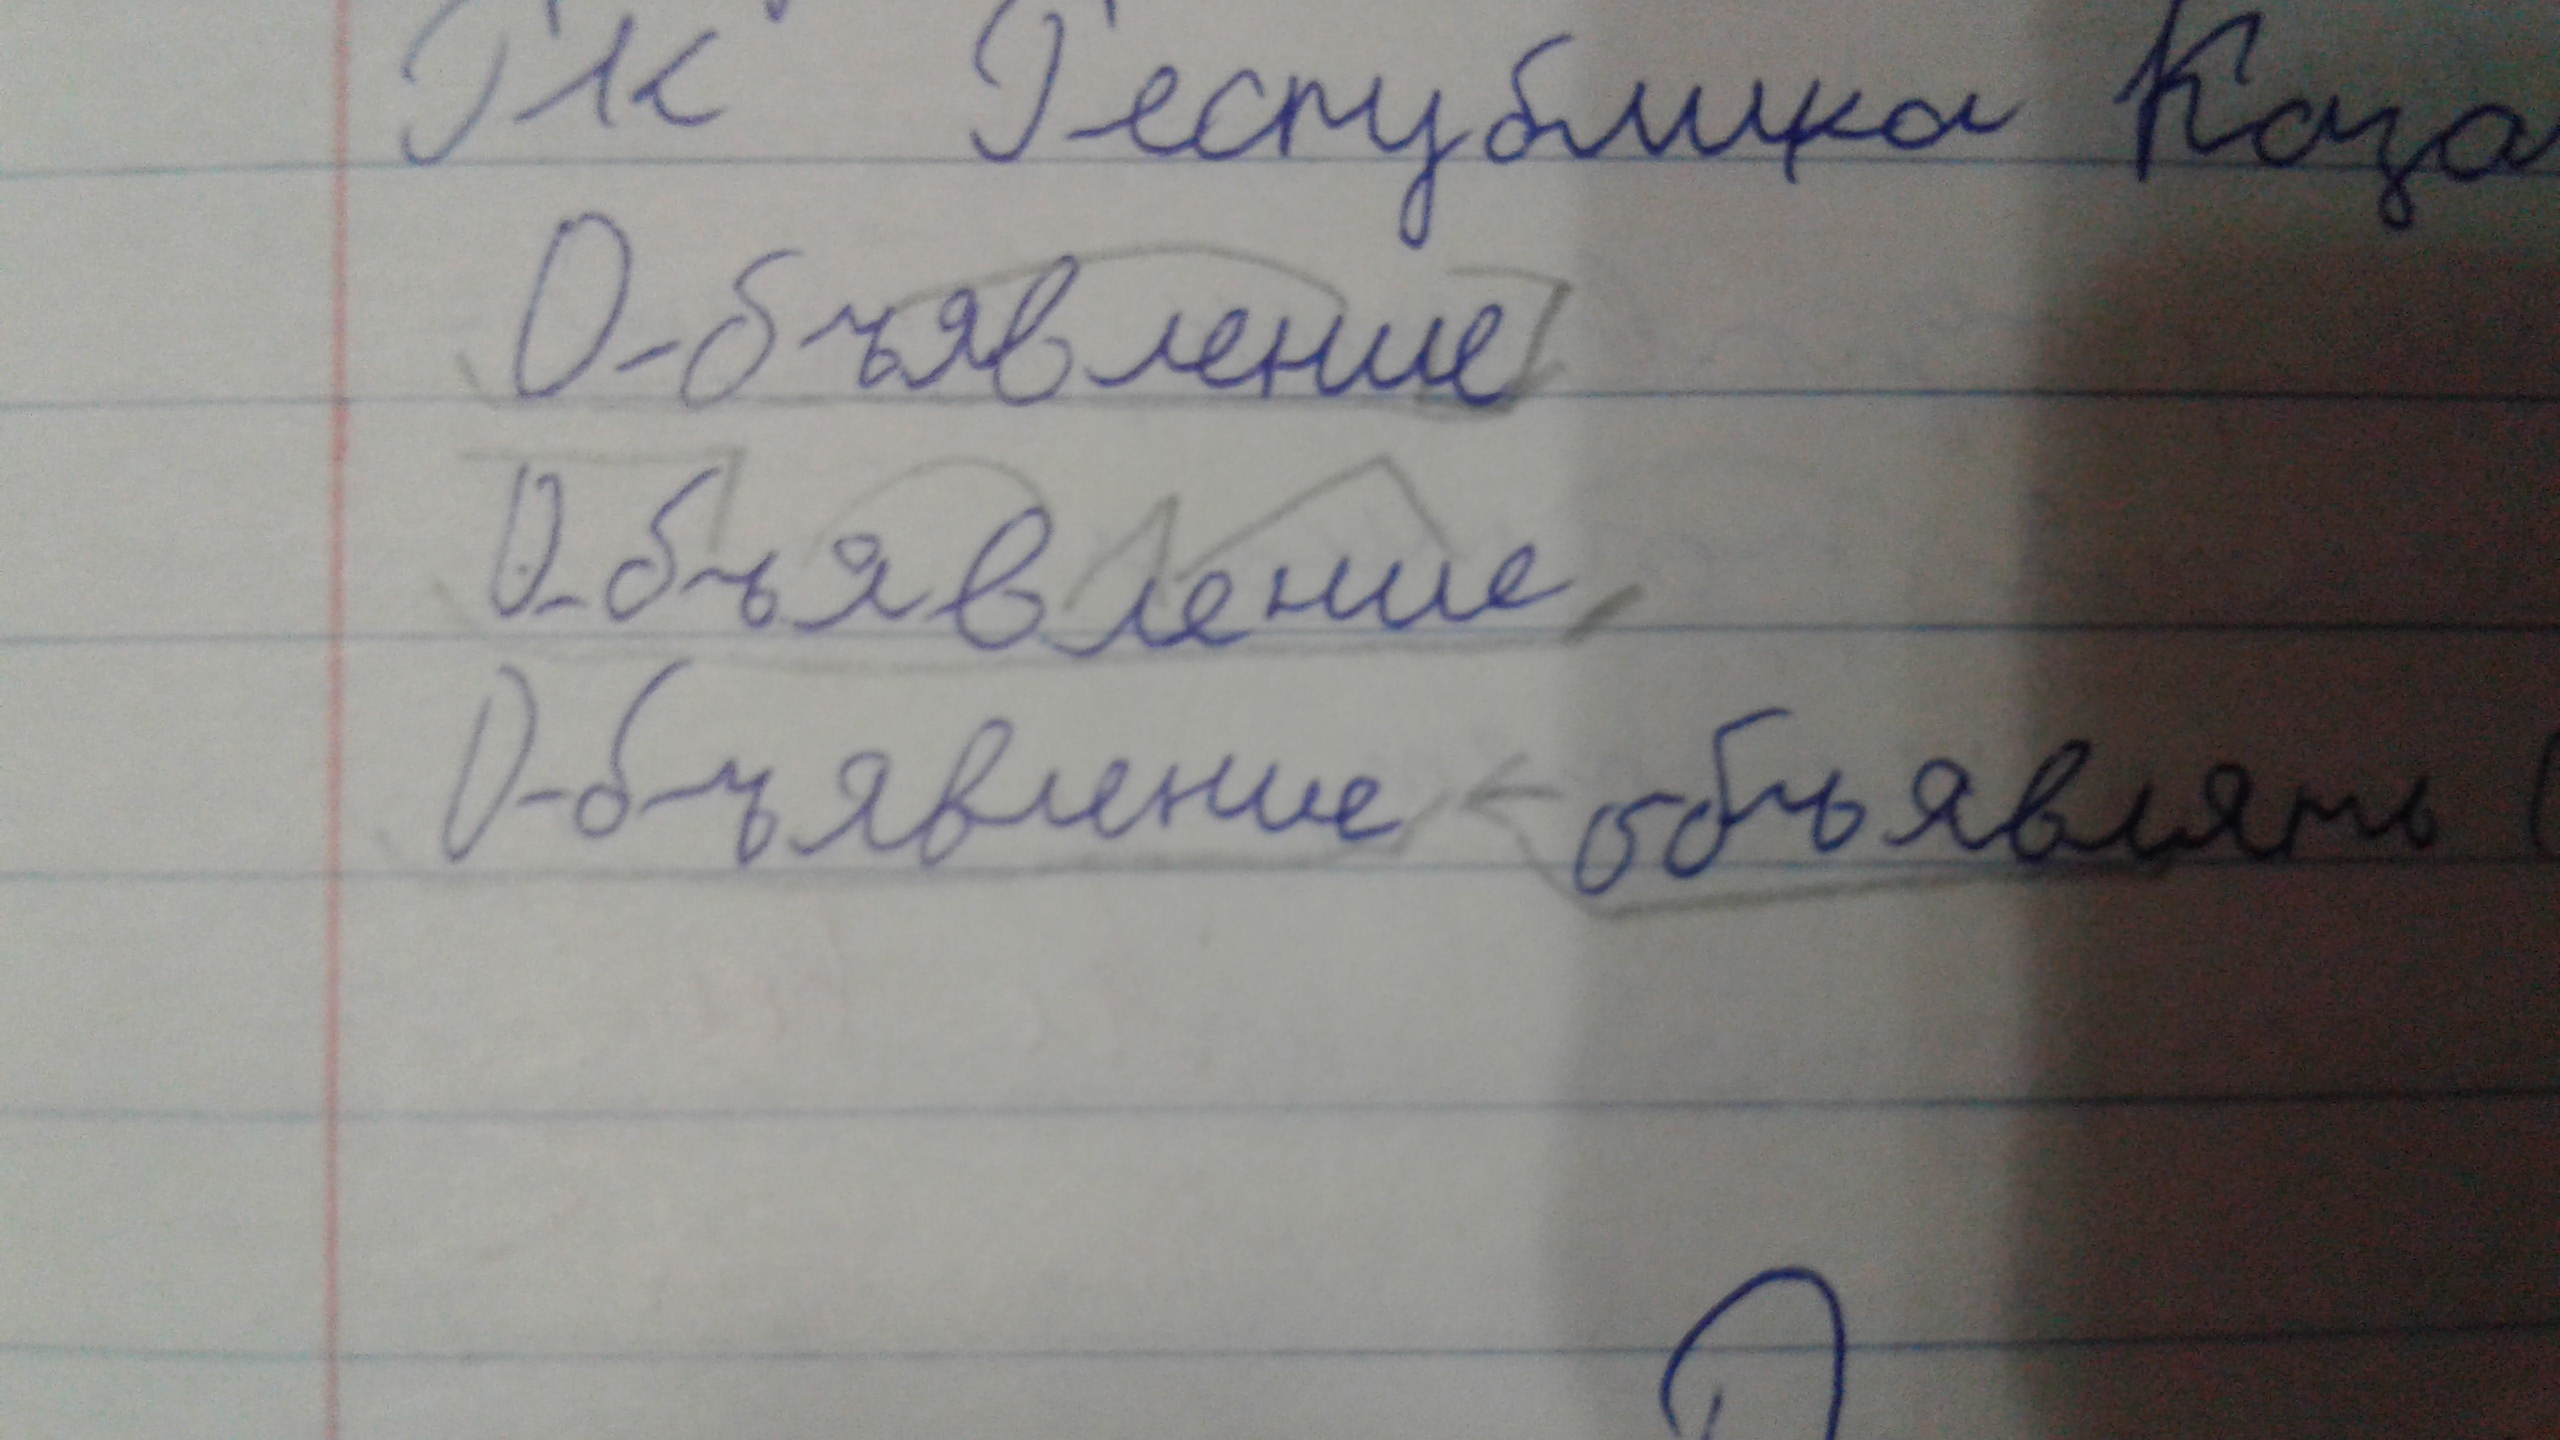 РК Республика Каза
Объявление
Объявление
Объявление ← объявлять (